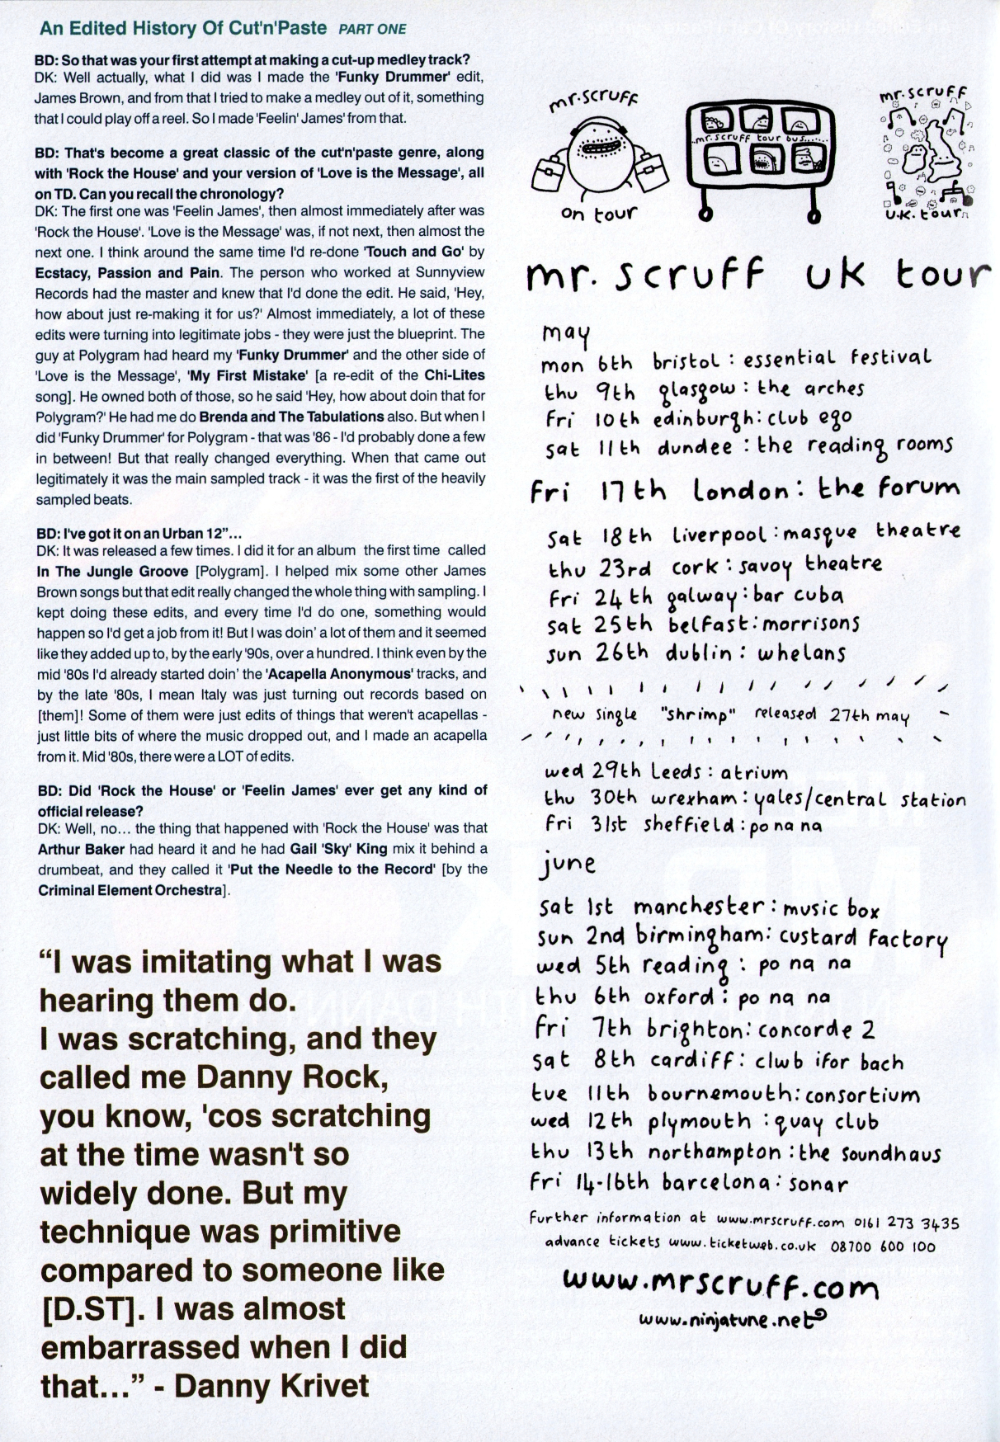 An Edited History Of Cut'n'Paste PART ONE
BD: So that was your first attempt at making a cut-up medley track?
DK: Well actually, what I did was I made the 'Funky Drummer' edit,
James Brown, and from that I tried to make a medley out of it, something
that I could play off a reel. So I made 'Feelin' James' from that.
BD: That's become a great classic of the cut'n'paste genre, along
with 'Rock the House' and your version of 'Love is the Message', all
on TD. Can you recall the chronology?
DK: The first one was 'Feelin James', then almost immediately after was
'Rock the House'. 'Love is the Message' was, if not next, then almost the
next one. I think around the same time I'd re-done 'Touch and Go' by
Ecstacy, Passion and Pain. The person who worked at Sunnyview
Records had the master and knew that I'd done the edit. He said, 'Hey,
how about just re-making it for us?' Almost immediately, a lot of these
edits were turning into legitimate jobs - they were just the blueprint. The
guy at Polygram had heard my 'Funky Drummer' and the other side of
'Love is the Message', 'My First Mistake' [a re-edit of the Chi-Lites
song]. He owned both of those, so he said 'Hey, how about doin that for
Polygram?' He had me do Brenda and The Tabulations also. But when I
did 'Funky Drummer' for Polygram - that was '86 - I'd probably done a few
in between! But that really changed everything. When that came out
legitimately it was the main sampled track - it was the first of the heavily
sampled beats.
BD: I've got it on an Urban 12”...
DK: It was released a few times. I did it for an album the first time called
In The Jungle Groove [Polygram]. I helped mix some other James
Brown songs but that edit really changed the whole thing with sampling. I
kept doing these edits, and every time I'd do one, something would
happen so I'd get a job from it! But I was doin' a lot of them and it seemed
like they added up to, by the early '90s, over a hundred. I think even by the
mid '80s I'd already started doin' the 'Acapella Anonymous' tracks, and
by the late '80s, I mean Italy was just turning out records based on
[them]! Some of them were just edits of things that weren't acapellas -
just little bits of where the music dropped out, and I made an acapella
from it. Mid '80s, there were a LOT of edits.
BD: Did 'Rock the House' or 'Feelin James' ever get any kind of
official release?
DK: Well, no... the thing that happened with 'Rock the House' was that
Arthur Baker had heard it and he had Gail 'Sky' King mix it behind a
drumbeat, and they called it 'Put the Needle to the Record' [by the
Criminal Element Orchestra].
“I was imitating what I was
hearing them do.
I was scratching, and they
called me Danny Rock,
you know, 'cos scratching
at the time wasn't so
widely done. But my
technique was primitive
compared to someone like
[D.ST]. I was almost
embarrassed when I did
that...” - Danny Krivet
mr.scruff
on tour
mr.scruff tour bus......
mr.scruff
u.k. tour
mr. scruff uk tour
may
mon 6th bristol : essential festival
thu 9th glasgow : the arches
fri 10th edinburgh: club ego
sat 11th dundee : the reading rooms
fri 17th london: the forum
sat 18th liverpool: masque theatre
thu 23rd cork : savoy theatre
fri 24th galway: bar cuba
sat 25th belfast: morrisons
sun 26th dublin : whelans
new single "shrimp" released 27th may
wed 29th leeds : atrium
thu 30th wrexham: yales/central station
fri 31st sheffield: po na na
june
sat 1st manchester: music box
sun 2nd birmingham: custard factory
wed 5th reading : po na na
thu 6th oxford : po na na
fri 7th brighton: concorde 2
sat 8th cardiff: clwb ifor bach
tue 11th bournemouth: consortium
wed 12th plymouth : quay club
thu 13th northampton : the soundhaus
fri 14-16th barcelona : sonar
further information at www.mrscruff.com 0161 273 3435
advance tickets www.ticketweb.co.uk 08700 600 100
www.mrscruff.com
www.ninjatune.net